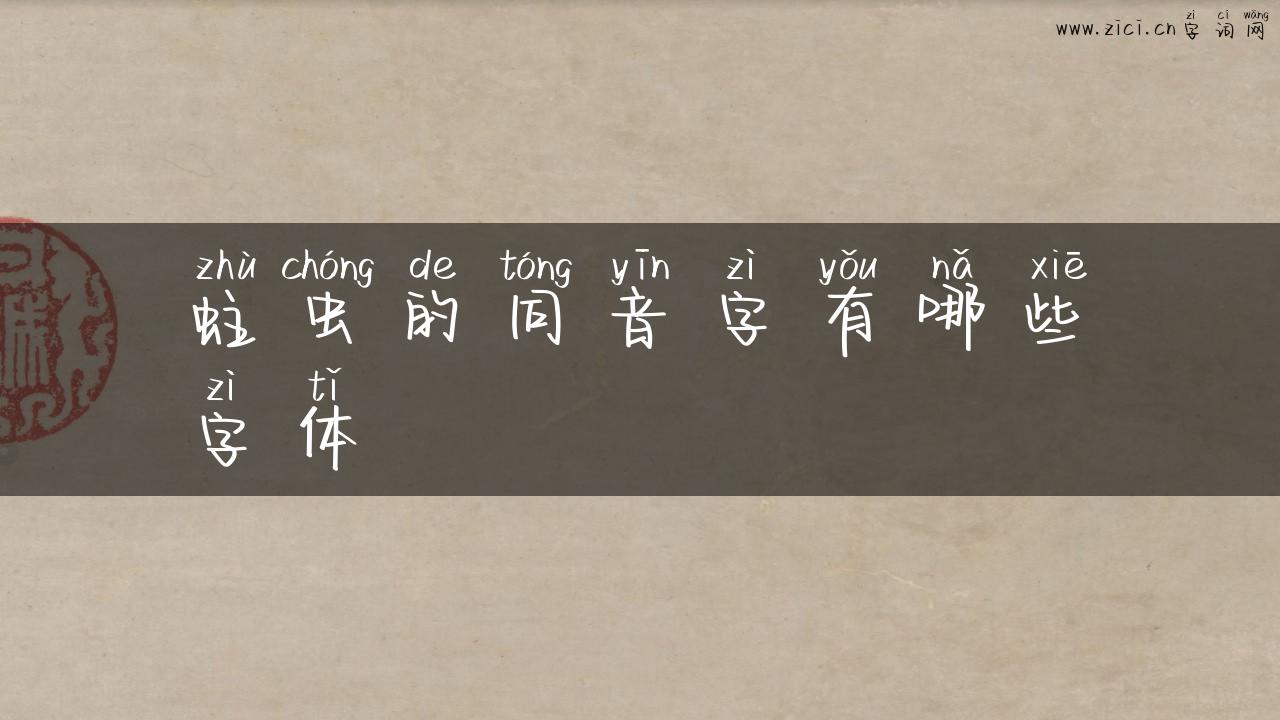 zì cí wǎng
www.zici.cn字词网
zhù chóng de tóng yīn zì yǒu nǎ xiē
蛀虫的同音字有哪些
zì tǐ
字体